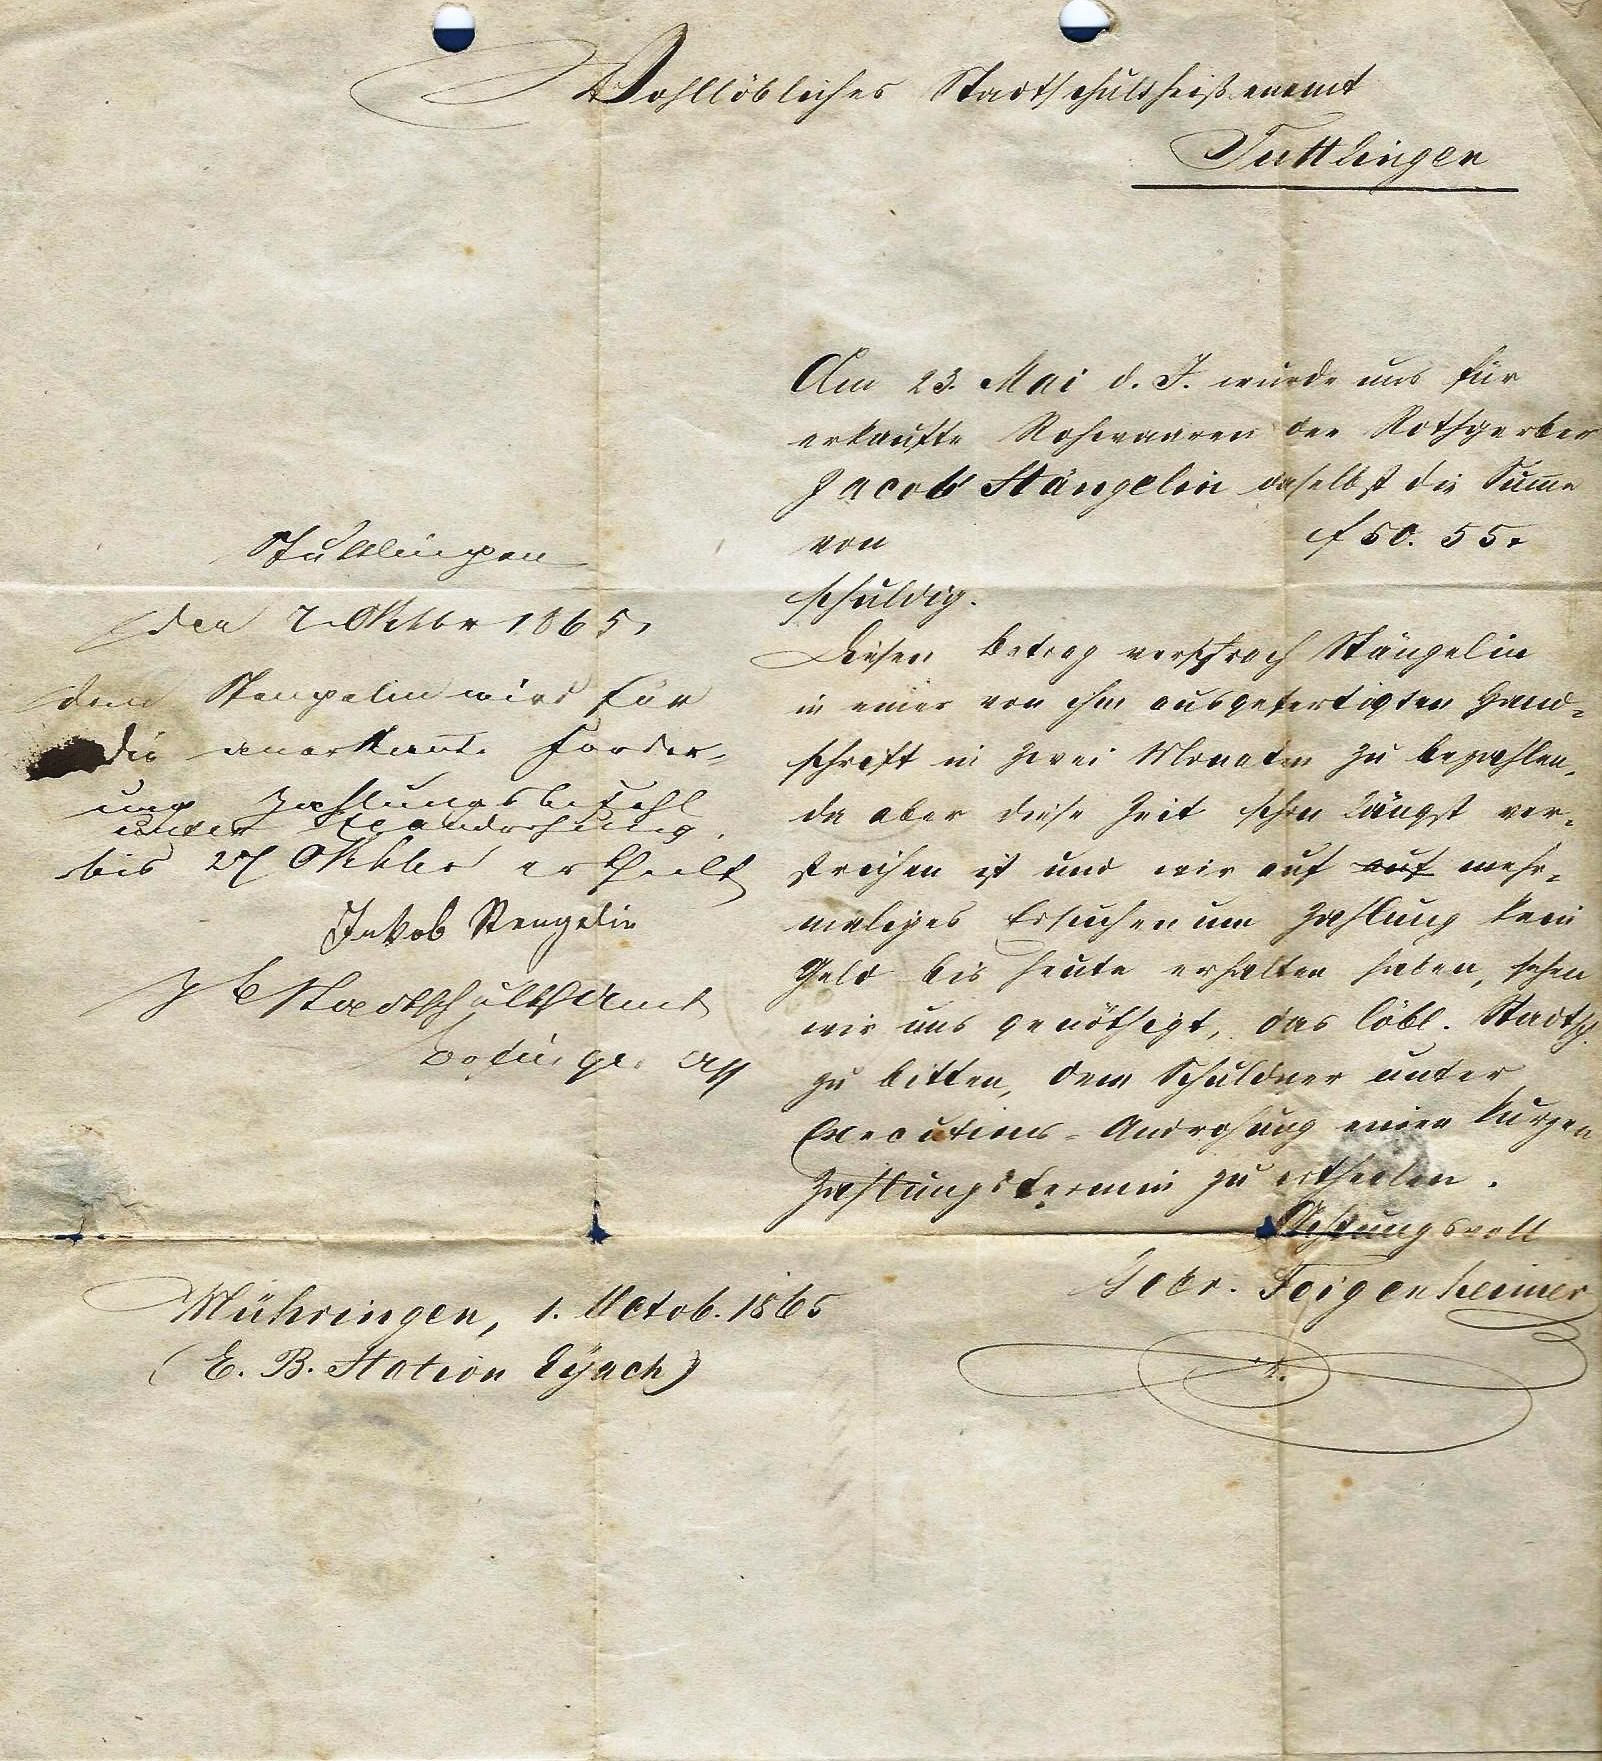 Wohllöbliches Stadtschultheißenamt
Tuttlingen
Am 23. Mai d. J. wurde uns für
erkaufte Rohwaaren der Rothgerber
Jacob Stängelin daselbst die Summe
von f 50. 55.
schuldig.
Diesen Betrag versprach Stängelin
in einer von ihm ausgefertigten Hand-
schrift in zwei Monaten zu bezahlen,
da aber diese Zeit schon längst ver-
strichen ist und wir auf auf mehr-
maliges Ersuchen um Zahlung kein
Geld bis heute erhalten haben, sehen
wir uns genöthigt, das löbl. Stadtsch.
zu bitten, dem Schuldner unter
Executions-Androhung einen kurzen
Zahlungstermin zu ertheilen.
Achtungsvoll
Gebr. Feigenheimer
Mühringen, 1. Octob. 1865
(E. B. Station Eyach)
Tuttlingen
den 7 Oktbr 1865.
dem Stengelin wird für
die anerkannte Forder-
ung Zahlungsbefehl
unter Exandrohung.
bis 27 Oktbr ertheilt
Jakob Stengelin
Stadtschulthamt